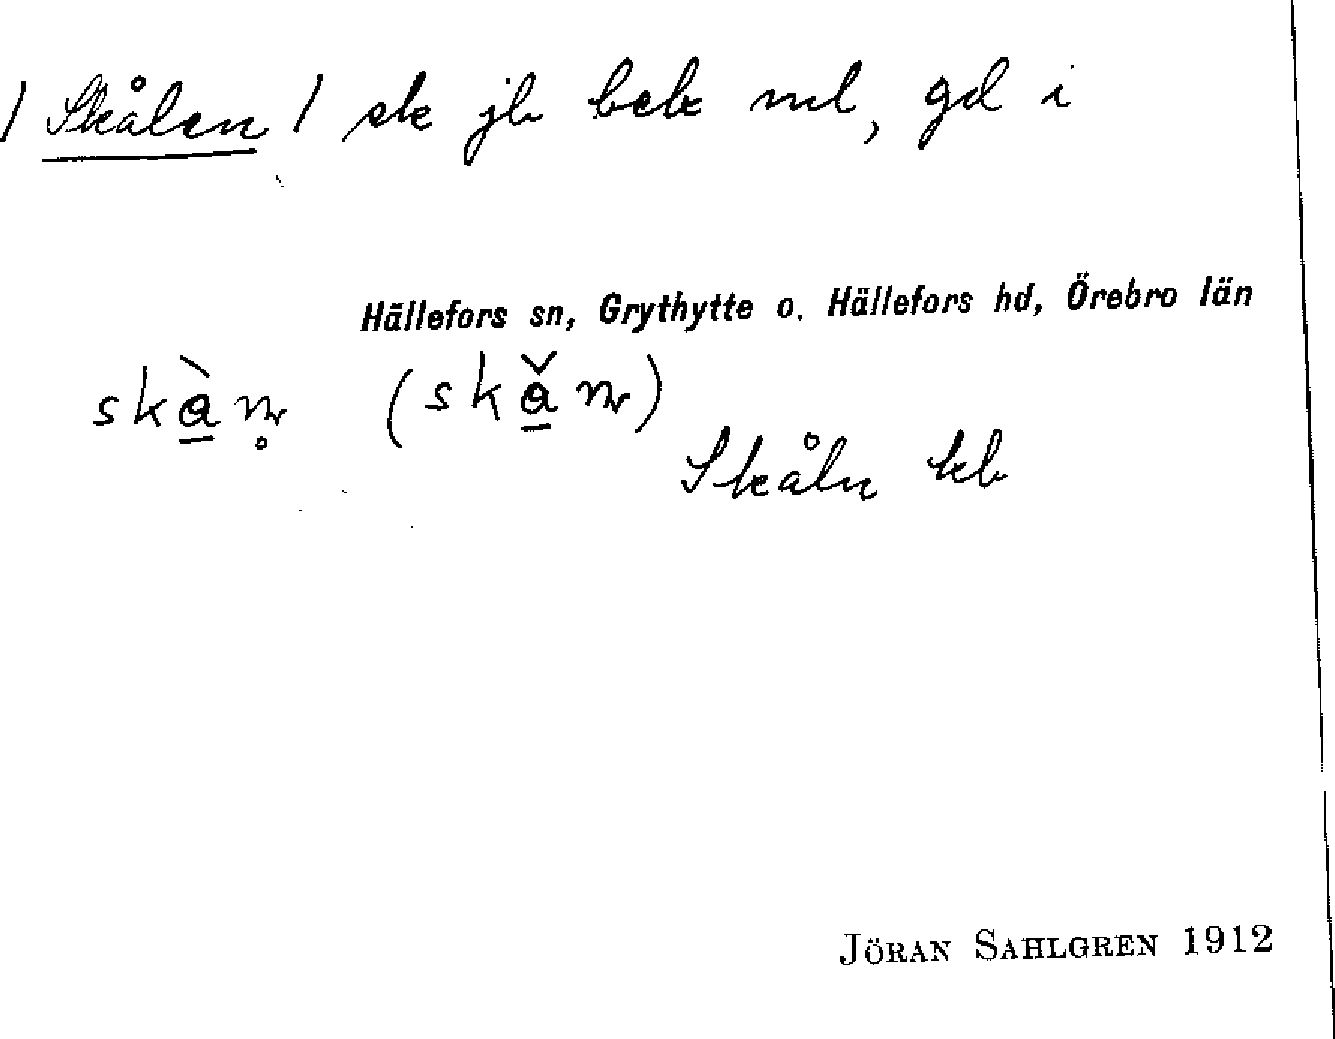 / Skålen / sk jb bek ml, gd i
Hällefors sn, Grythytte o. Hällefors hd, Örebro län
Skåln kb
JÖRAN SAHLGREN 1912